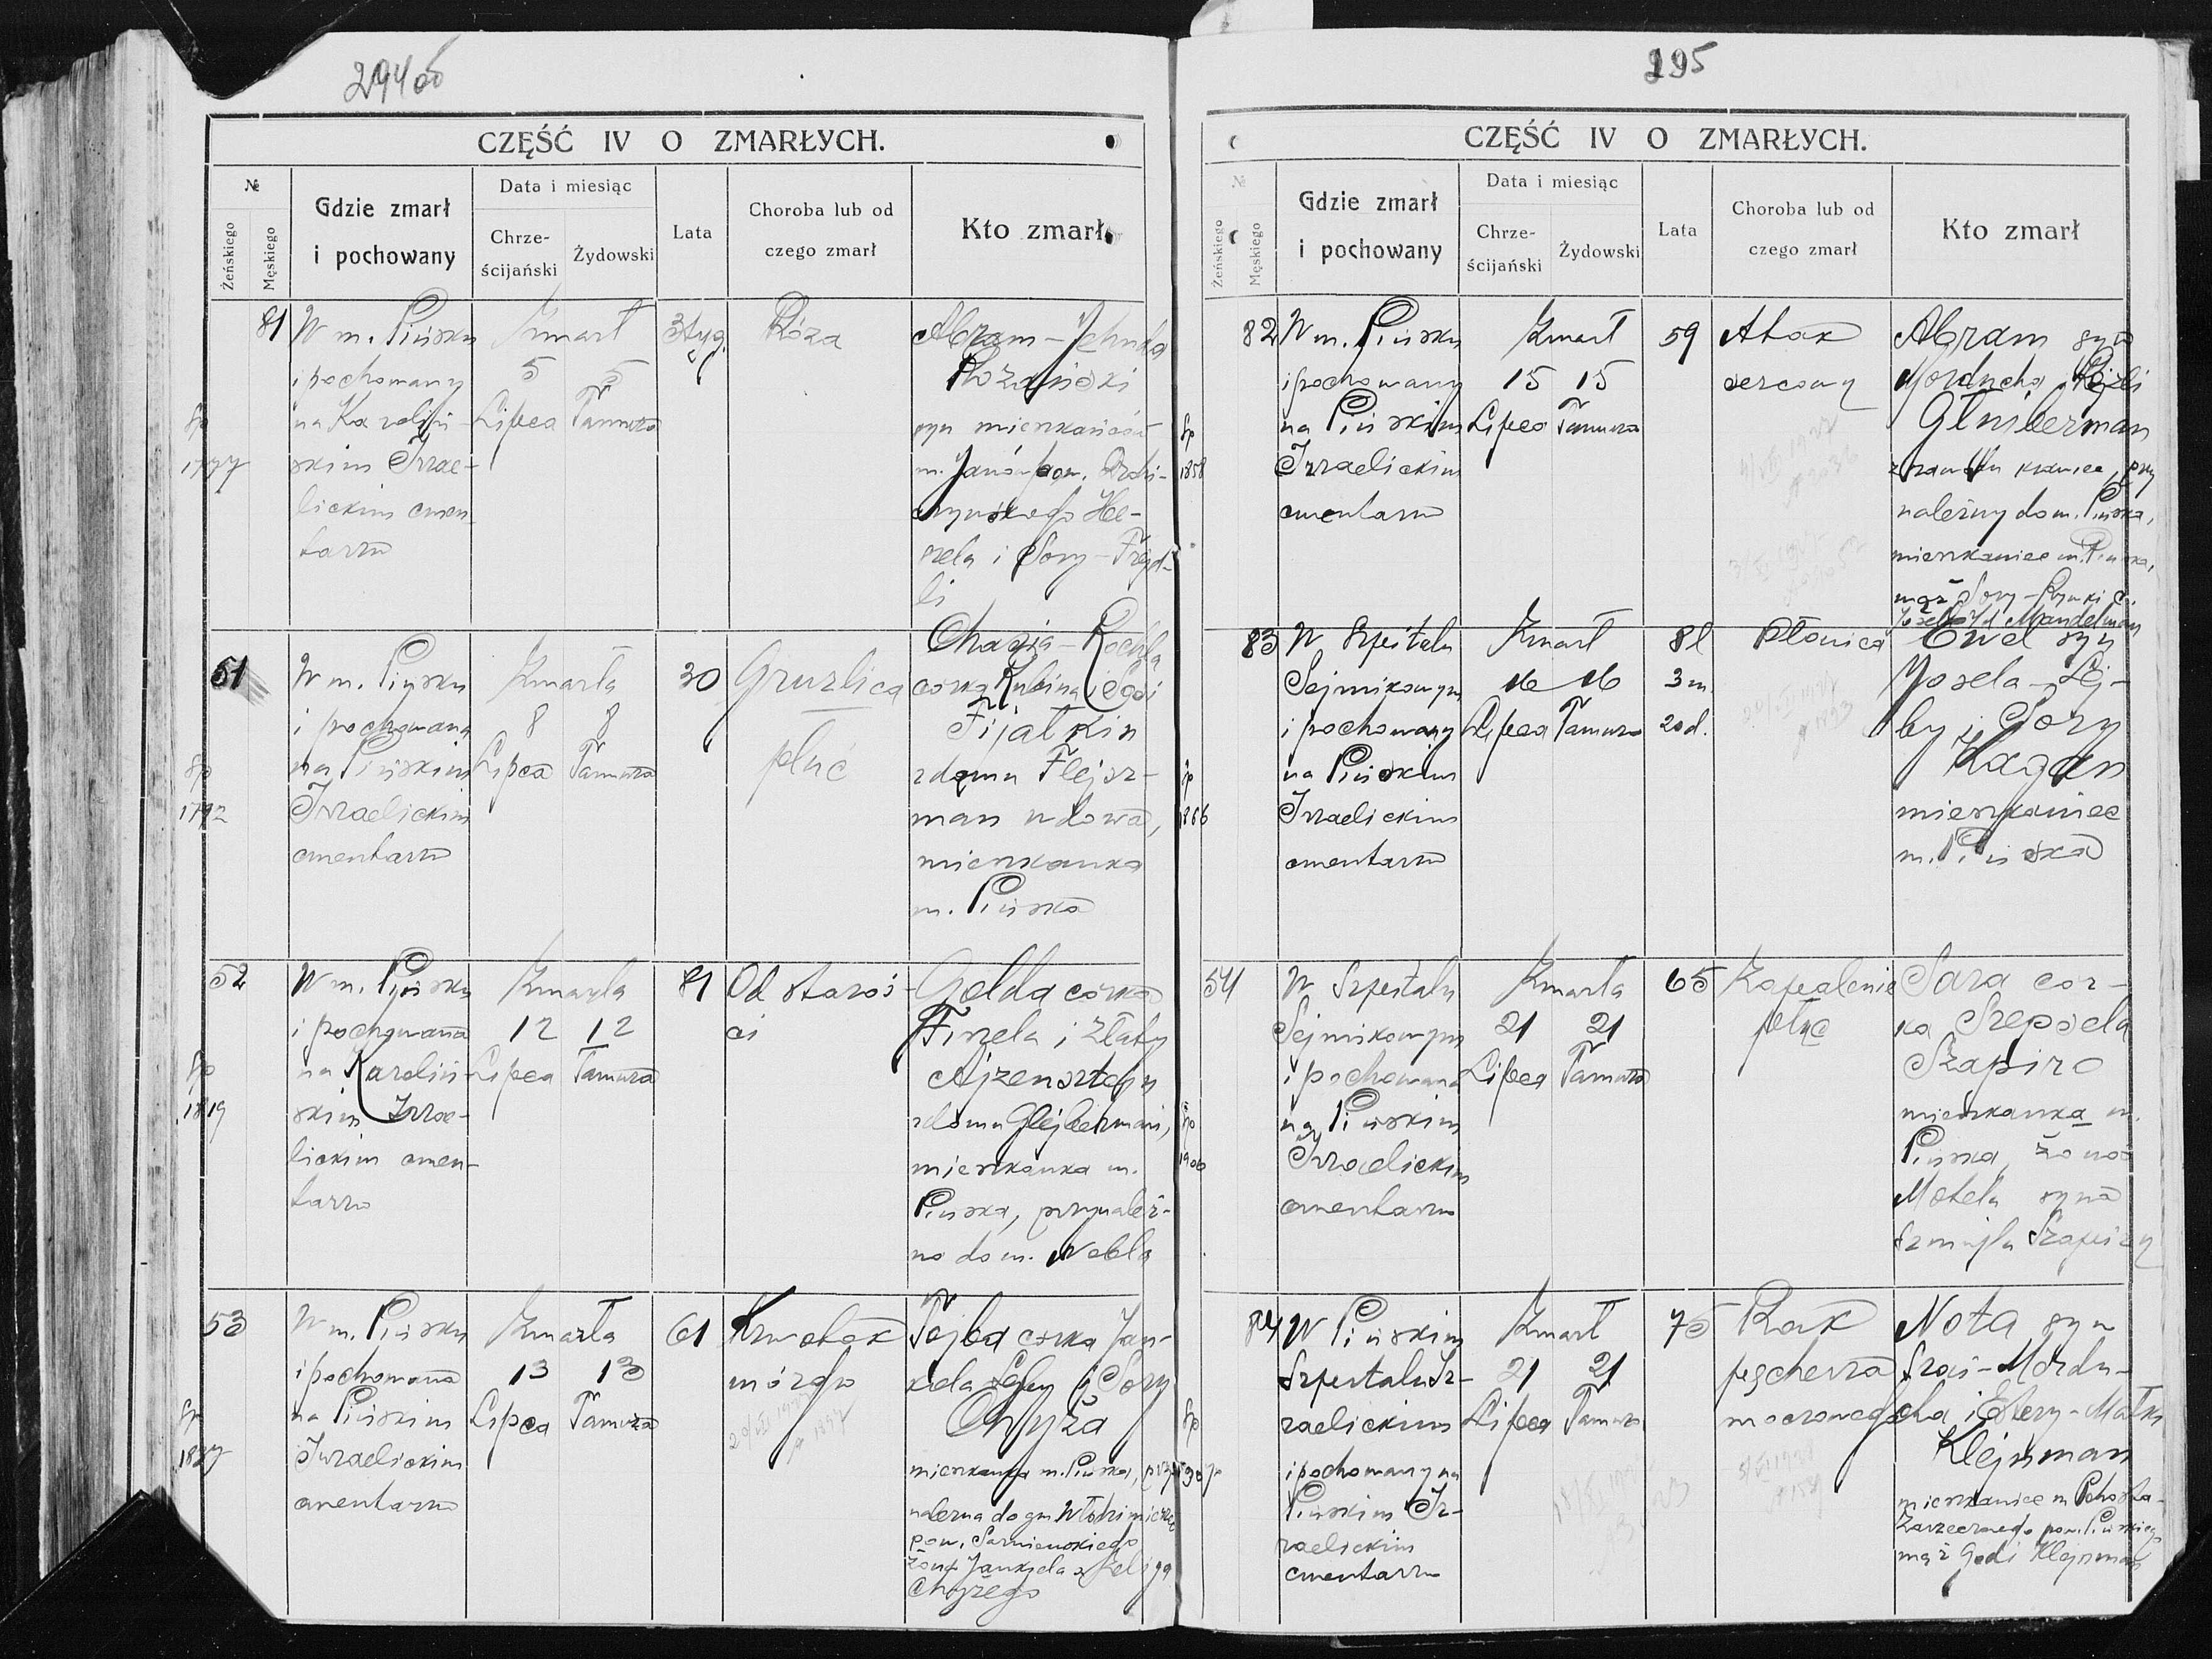 294 об
CZĘŚĆ IV O ZMARŁYCH.
№
Żeńskiego
Męskiego
Gdzie zmarł
i pochowany
Data i miesiąc
Chrze-
ścijański
Żydowski
Lata
Choroba lub od
czego zmarł
Kto zmarł
81
W m. Pińsku
i pochowany
na Karoliń-
skim Izrae-
lickim cmen
tarzu
Zmarł
5 5
Lipca Tamuza
3 tyg.
Róża
Abram-Jehuda
Rożański
syn mieszkańców
m. Janów pow. Drohi-
czyńskiego He-
szela i Sory-Frejd-
li
Sp
1777
51
W m. Pińsku
i pochowana
na Pińskim
Izraelickim
cmentarzu
Zmarła
8 8
Lipca Tamuza
30
Gruźlica
płuc
Chasia-Rochla
córka Rubina i
Fijałkin
z domu Flejsz-
man wdowa,
mieszkanka
m. Pińska
Sp
1792
52
W m. Pińsku
i pochowana
na Karoliń-
skim Izrae-
lickim cmen-
tarzu
Zmarła
12 12
Lipca Tamuza
81
Od staroś-
ci
Golda córka
Fiszela i Złaty
Ajzensztejn
z domu Glejberman,
mieszkanka m.
Pińska, przynależ-
na do m. Nobla
Sp
1819
53
W m. Pińsku
i pochowana
na Pińskim
Izraelickim
cmentarzu
Zmarła
13 13
Lipca Tamuza
61
Krwotok
mózgu
Tejba córka Jan-
kela i Sory
Chyża
mieszkanka m. Pińska, przy
należna do gm Włodzimierzec
pow. Sarnieńskiego
żona Jankiela s. Zeliga
Chyżego
Sp
1827
295
CZĘŚĆ IV O ZMARŁYCH.
№
Żeńskiego
Męskiego
Gdzie zmarł
i pochowany
Data i miesiąc
Chrze-
ścijański
Żydowski
Lata
Choroba lub od
czego zmarł
Kto zmarł
82
W m. Pińsku
i pochowany
na Pińskim
Izraelickim
cmentarzu
Zmarł
15 15
Lipca Tamuza
59
Atak
sercowy
Abram syn
Morducha i Rejzli
Glouberman
z zawodu krawiec, przy
należny do m. Pińska,
mieszkaniec m. Pińska,
mąż Sory-Rywki c.
Mandelman
Sp
1858
83
W Szpitalu
Sejmikowym
i pochowany
na Pińskim
Izraelickim
cmentarzu
Zmarł
16 16
Lipca Tamuza
8l
3 m.
20 d.
Płonica
Ewel syn
Josela-Lej-
by i Sory
Kagan
mieszkaniec
m. Pińska
Sp
1866
54
W Szpitalu
Sejmikowym
i pochowana
na Pińskim
Izraelickim
cmentarzu
Zmarła
21 21
Lipca Tamuza
65
Zapalenie
płuc
Sara cór-
ka Szepsela
Szapiro
mieszkanka m.
Pińska, żona
Motela syna
Szmujla Szapiry
Sp
1906
84
W Pińskim
Szpitalu Iz-
raelickim
i pochowany na
Pińskim Iz-
raelickim
cmentarzu
Zmarł
21 21
Lipca Tamuza
75
Rak
pęcherza
moczowego
Nota syn
Sraj-Mordu-
cha i Estery-Malki
Klejnman
mieszkaniec m Pohosta-
Zarzecznego pow. Pińskiego
mąż Godi Klejnman
Sp
1907